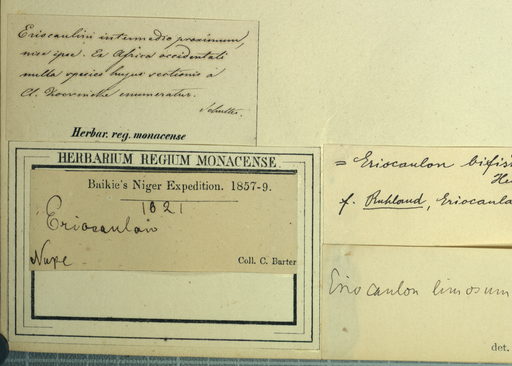 Eriocaulini intermedio proximum,
nisi ipse. Ex Africa occidentali
nulla species hujus sectionis a
Cl. Koernicke enumeratur.
Herbar. reg. monacense
HERBARIUM REGIUM MONACENSE.
Baikie's Niger Expedition. 1857-9.
1021
Eriocaulon
Nupe
Coll. C. Barter
= Eriocaulon bifis
He
f. Ruhland, Eriocaula
Eriocaulon limosum
det.